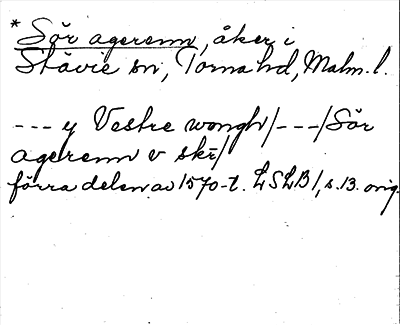 * Sör agerenn, åker i
Stävie sn, Torna hd, Malm. l.
--- y Vestre wongh/---/Sör
agerenn v skr/
förra delen av 1570-t. LSLB1, s. 13. orig.